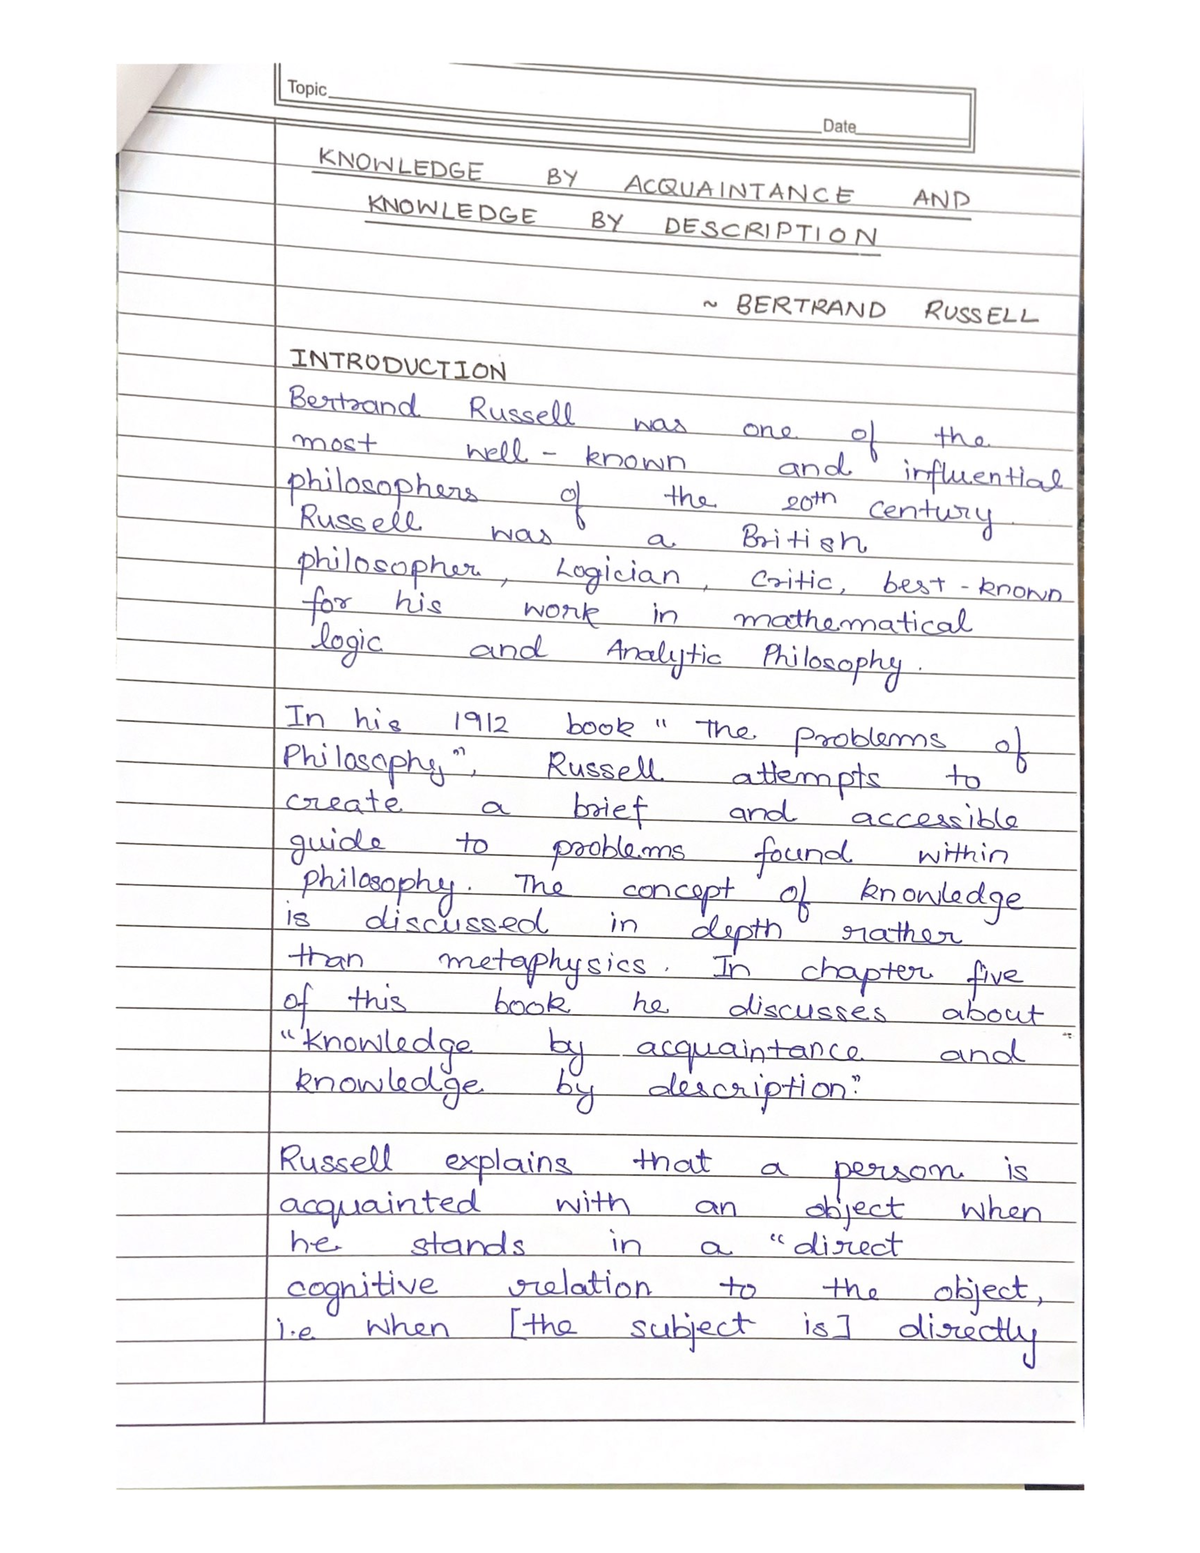 Topic
Date
KNOWLEDGE BY ACQUAINTANCE AND
KNOWLEDGE BY DESCRIPTION
~ BERTRAND RUSSELL
INTRODUCTION
Bertrand Russell was one of the
most well-known and influential
philosophers of the 20th century.
Russell was a British
philosopher, Logician, Critic, best-known
for his work in mathematical
logic and Analytic Philosophy.
In his 1912 book "The problems of
Philosophy", Russell attempts to
create a brief and accessible
guide to problems found within
philosophy. The concept of knowledge
is discussed in depth rather
than metaphysics. In chapter five
of this book he discusses about
"knowledge by acquaintance and
knowledge by description."
Russell explains that a person is
acquainted with an object when
he stands in a "direct
cognitive relation to the object,
i.e when [the subject is] directly